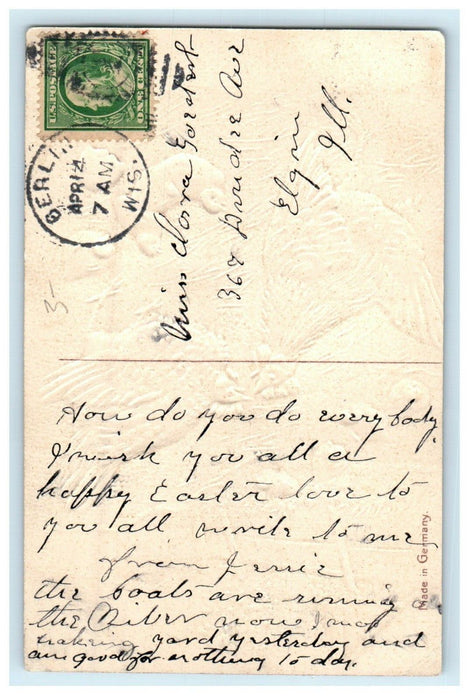 U.S. POSTAGE
ONE CENT
BERLIN
APR 14
7 AM
WIS.
Miss Clara
Ave
Elgin
Ill.
3-
How do you do everybody
I wish you all a
happy Easter love to
you all write to me
from Jessie
the boats are running
the now I was
yard yesterday and
am good for nothing to day.
Made in Germany